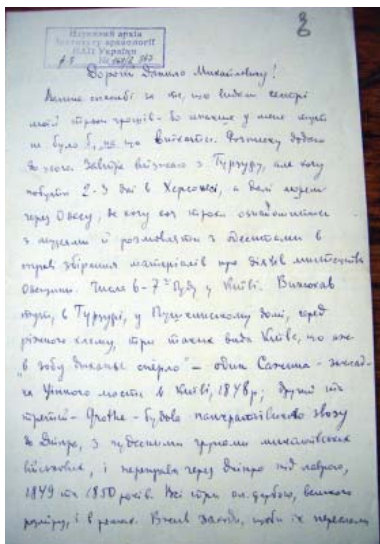 Науковий архів
Інституту археології
НАН України
Дорогий Данило Михайловичу!
Велике спасибі за те, що видали сестрі
моїй трохи грошей - бо инакше у мене тут
не було б, на що виїхати. Розписку додаю
до цього. Завтра виїжаю з Гурзуфу, але хочу
побути 2-3 дні в Херсонесі, а далі морем
через Одесу, де хочу хоч трохи ознайомитись
з музеями й розмовляти з Одеситами в
справі збірання матеріалів про діячів мистецтва
Одещини. Числа 6-7го буду у Київі. Винюхав
тут, в Гурзуфі, у Пушкинському домі, серед
ріжного хламу, три таких вида Київа, що аж
"в зобу диханье спёрло" - один Сажина - заклад-
ка Цепного моста в Київі, 1848 р; другий та
третій - Grothe - будова панкратіївського звозу
до Дніпра, з чудесними групами миколаївських
військових, і переправа через Дніпро під лаврою,
1849 та 1850 років. Всі три ол. фарбою, великого
розміру, і в рямах. Вжив заходів, щоби їх переслали